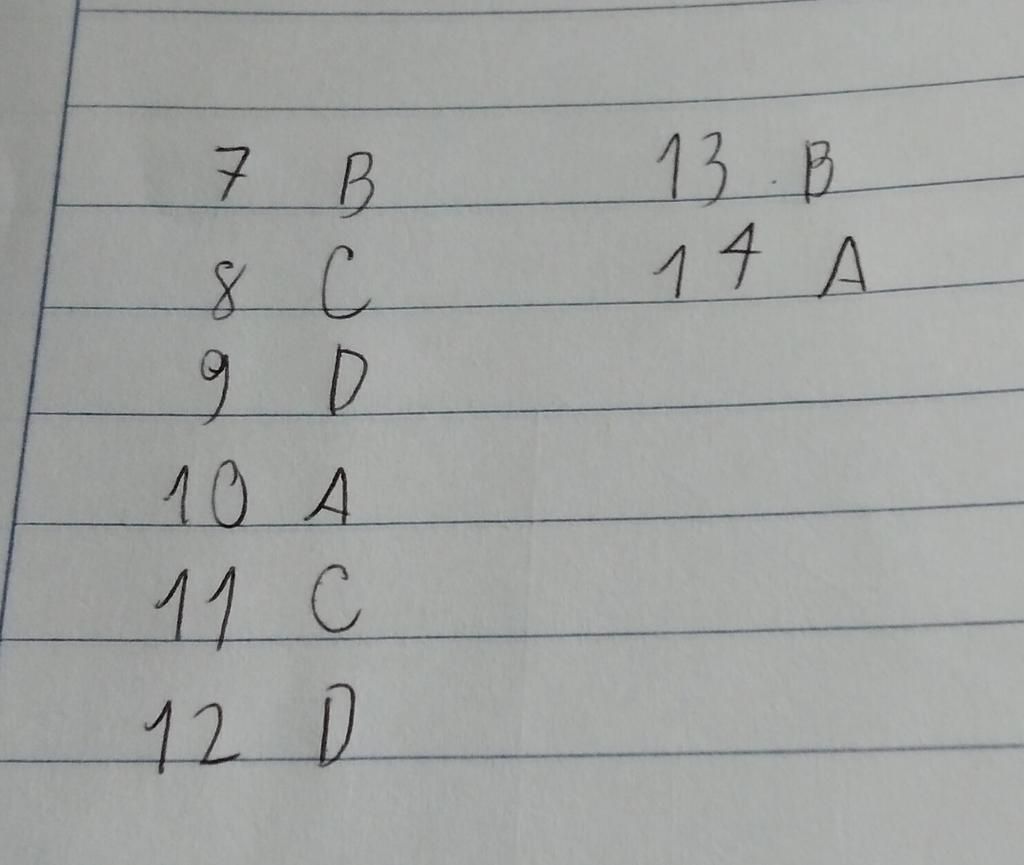 7 B
8 C
9 D
10 A
11 C
12 D
13. B
14 A